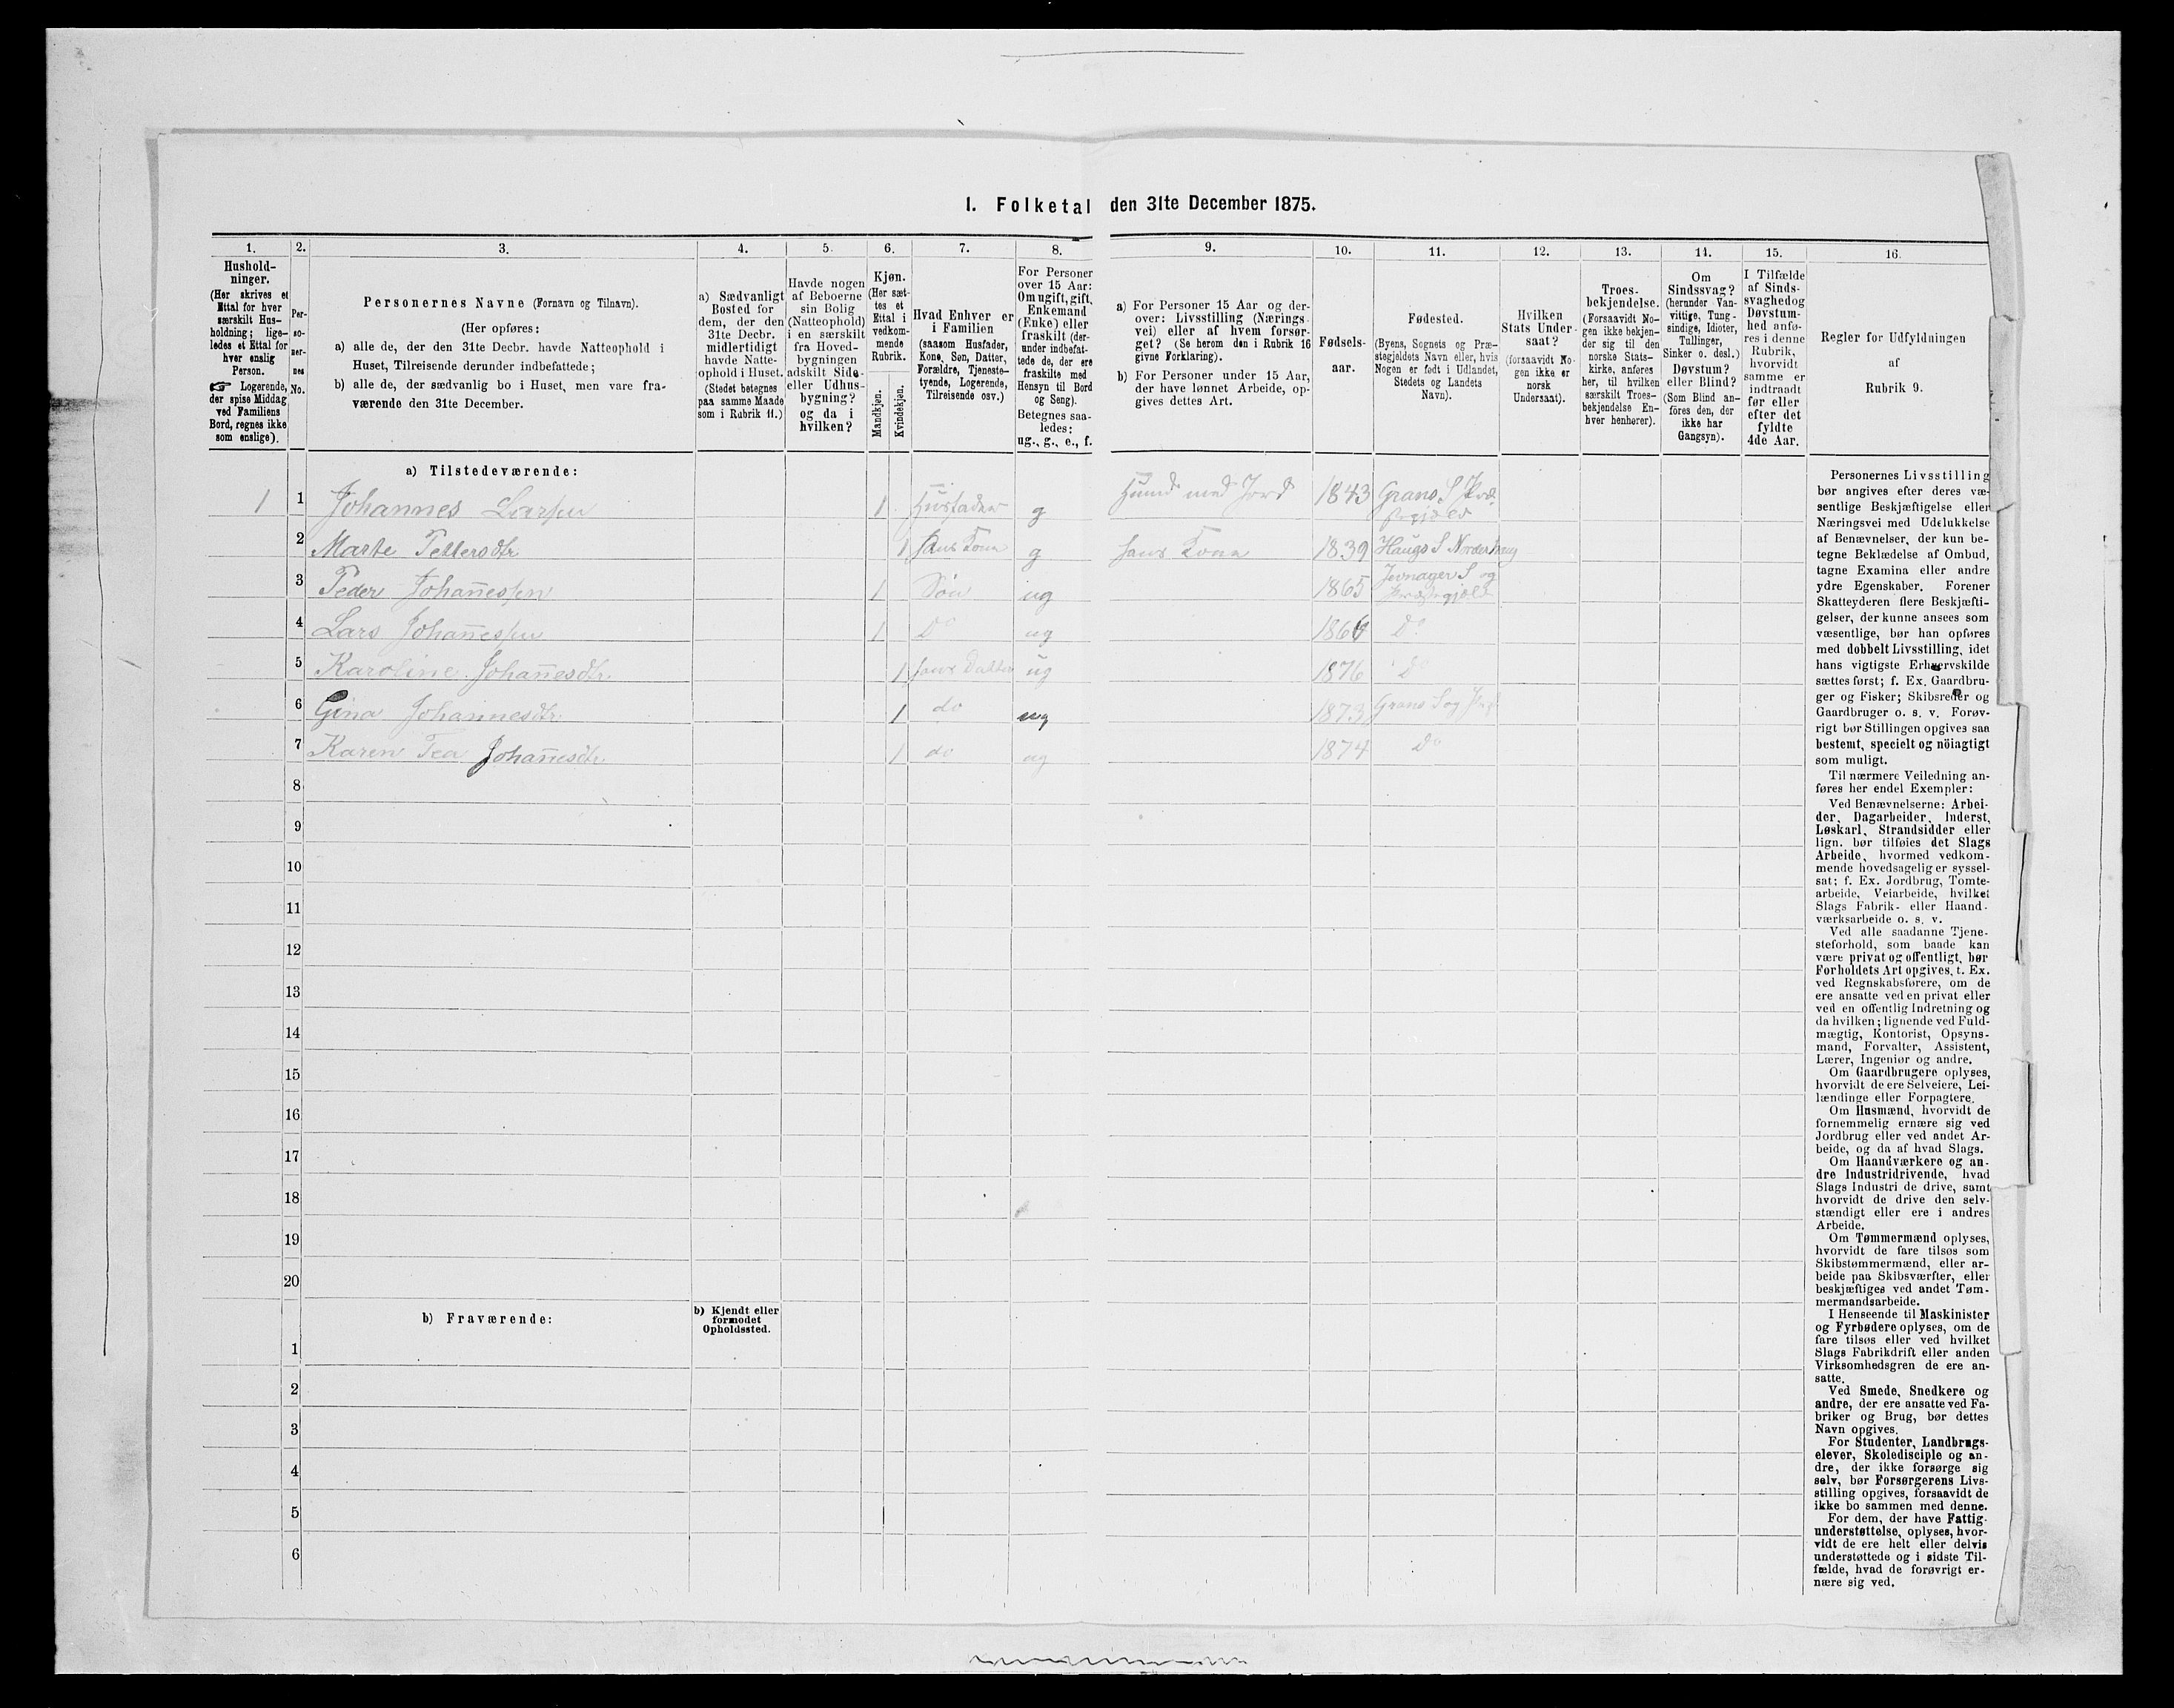 I. Folketal den 31te December 1875.
1. 2. 3. 4. 5. 6. 7. 8. 9. 10. 11. 12. 13. 14. 15. 16.
Hushold-
ninger.
(Her skrives et
Ettal for hver
særskilt Hus-
holdning; lige-
ledes et Ettal for
hver enslig
Person.
☞ Logerende,
der spise Middag
ved Familiens
Bord, regnes ikke
som enslige).
Per-
so-
ner-
nes
No.
Personernes Navne (Fornavn og Tilnavn).
(Her opføres:
a) alle de, der den 31te Decbr. havde Natteophold i
Huset, Tilreisende derunder indbefattede;
b) alle de, der sædvanlig bo i Huset, men vare fra-
værende den 31te December.
a) Sædvanligt
Bosted for
dem, der den
31te Decbr.
midlertidigt
havde Natte-
ophold i Huset.
(Stedet betegnes
paa samme Maade
som i Rubrik 11.)
Havde nogen
af Beboerne
sin Bolig
(Natteophold)
i en særskilt
fra Hoved-
bygningen
adskilt Side-
eller Udhus-
bygning?
og da i
hvilken?
Kjøn.
(Her sæt-
tes et
Ettal i
vedkom-
mende
Rubrik.
Mandkjøn.
Kvindekjøn.
Hvad Enhver er
i Familien
(saasom Husfader,
Kone, Søn, Datter,
Forældre, Tjeneste-
tyende, Logerende,
Tilreisende osv.)
For Personer
over 15 Aar:
Om ugift, gift,
Enkemand
(Enke) eller
fraskilt (der-
under indbefat-
tede de, der ere
fraskilte med
Hensyn til Bord
og Seng).
Betegnes saa-
ledes:
ug., g., e., f.
a) For Personer 15 Aar og der-
over: Livsstilling (Nærings-
vei) eller af hvem forsør-
get? (Se herom den i Rubrik 16
givne Forklaring).
b) For Personer under 15 Aar,
der have lønnet Arbeide, op-
gives dettes Art.
Fødsels-
aar.
Fødested.
(Byens, Sognets og Præ-
stegjeldets Navn eller, hvis
Nogen er født i Udlandet,
Stedets og Landets
Navn).
Hvilken
Stats Under-
saat?
(forsaavidt No-
gen ikke er
norsk
Undersaat).
Troes-
bekjendelse.
(Forsaavidt No-
gen ikke bekjen-
der sig til den
norske Stats-
kirke, anføres
her, til hvilken
særskilt Troes-
bekjendelse En-
hver henhører).
Om
Sindssvag?
(herunder Van-
vittige, Tung-
sindige, Idioter,
Tullinger,
Sinker o. desl.)
Døvstum?
eller Blind?
(Som Blind an-
føres den, der
ikke har
Gangsyn).
I Tilfælde
af Sinds-
svaghed og
Døvstum-
hed anfø-
res i denne
Rubrik,
hvorvidt
samme er
indtraadt
før eller
efter det
fyldte
4de Aar.
Regler for Udfyldningen
af
Rubrik 9.
a) Tilstedeværende:
1 1 Johannes Larsen 1 Husfader g Husmd med Jord 1843 Grans S Præ-
stegjeld
2 Marte Pettersdtr 1 hans Kone g hans Kone 1839 Haugs S Norderhaug
3 Peder Johañessen 1 Søn ug 1865 Jevnager S og
Præstegjæld
4 Lars Johañessen 1 Do ug 1866 Do
5 Karoline Johañesdtr. 1 hans Datter ug 1876 Do
6 Gina Johannesdtr. 1 do ug 1873 Grans S og
7 Karen Tea Johañesdtr. 1 do ug 1874 Do
8
9
10
11
12
13
14
15
16
17
18
19
20
b) Fraværende:
b) Kjendt eller
formodet
Opholdssted.
1
2
3
4
5
6
Personernes Livsstilling
bør angives efter deres væ-
sentlige Beskjæftigelse eller
Næringsvei med Udelukkelse
af Benævnelser, der kun be-
tegne Beklædelse af Ombud,
tagne Examina eller andre
ydre Egenskaber. Forener
Skatteyderen flere Beskjæfti-
gelser, der kunne ansees som
væsentlige, bør han opføres
med dobbelt Livsstilling, idet
hans vigtigste Erhvervskilde
sættes først; f. Ex. Gaardbru-
ger og Fisker; Skibsreder og
Gaardbruger o. s. v. Forøv-
rigt bør Stillingen opgives saa
bestemt, specielt og nöiagtigt
som muligt.
Til nærmere Veiledning an-
føres her endel Exempler:
Ved Benævnelserne: Arbei-
der, Dagarbeider, Inderst,
Løskarl, Strandsidder eller
lign. bør tilføies det Slags
Arbeide, hvormed vedkom-
mende hovedsagelig er syssel-
sat; f. Ex. Jordbrug, Tomte-
arbeide, Veiarbeide, hvilket
Slags Fabrik- eller Haand-
værksarbeide o. s. v.
Ved alle saadanne Tjene-
steforhold, som baade kan
være privat og offentligt, bør
Forholdets Art opgives, t. Ex.
ved Regnskabsførere, om de
ere ansatte ved en privat eller
ved en offentlig Indretning og
da hvilken; lignende ved Fuld-
mægtig, Kontorist, Opsyns-
mand, Forvalter, Assistent,
Lærer, Ingeniør og andre.
Om Gaardbrugere oplyses,
hvorvidt de ere Selveiere, Lei-
lændinge eller Forpagtere.
Om Husmænd, hvorvidt de
fornemmelig ernære sig ved
Jordbrug eller ved andet Ar-
beide, og da af hvad Slags.
Om Haandværkere og an-
dre Industridrivende, hvad
Slags Industri de drive, samt
hvorvidt de drive den selv-
stændigt eller ere i andres
Arbeide.
Om Tømmermænd oplyses,
hvorvidt de fare tilsøs som
Skibstømmermænd, eller ar-
beide paa Skibsværfter, eller
beskjæftiges ved andet Tøm-
mermandsarbeide.
I Henseende til Maskinister
og Fyrbødere oplyses, om de
fare tilsøs eller ved hvilket
Slags Fabrikdrift eller anden
Virksomhedsgren de ere an-
satte.
Ved Smede, Snedkere og
andre, der ere ansatte ved Fa-
briker og Brug, bør dettes
Navn opgives.
For Studenter, Landbrugs-
elever, Skoledisciple og an-
dre, der ikke forsørge sig
selv, bør Forsørgerens Livs-
stilling opgives, forsaavidt de
ikke bo sammen med denne.
For dem, der have Fattig-
understøttelse, oplyses, hvor-
vidt de ere helt eller delvis
understøttede og i sidste Til-
fælde, hvad de forøvrigt er-
nære sig ved.